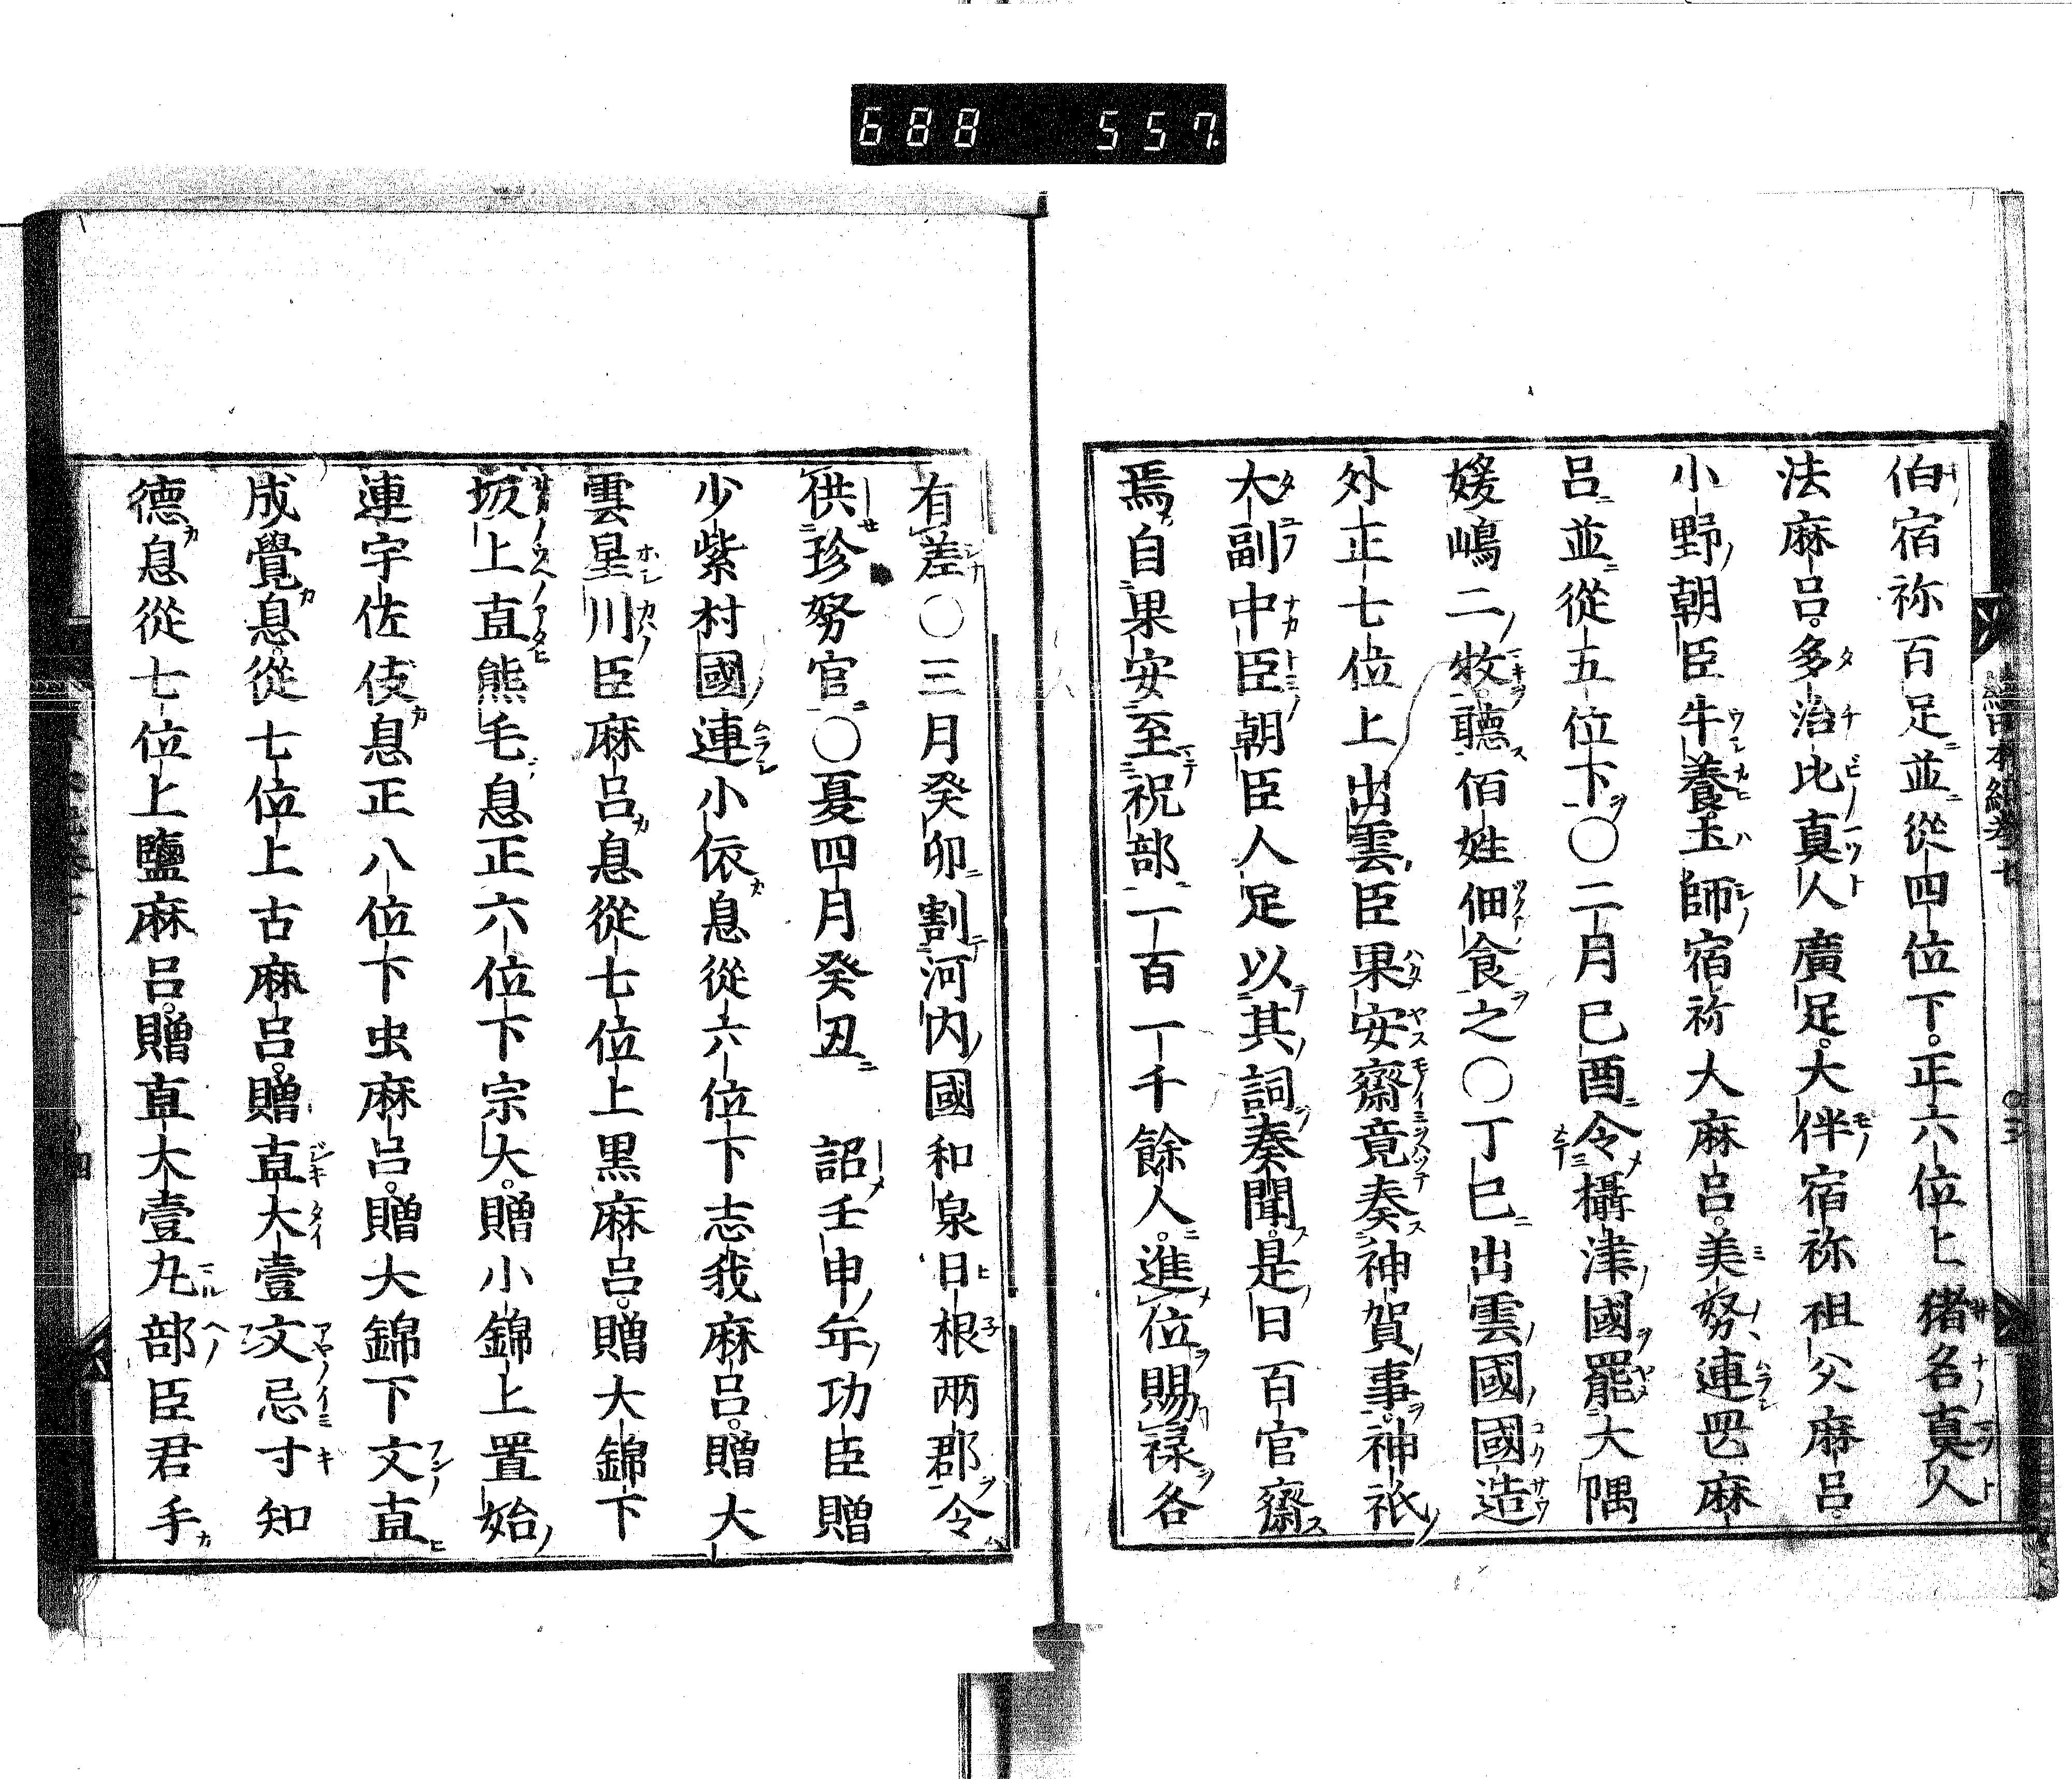 688 557
伯宿祢百足並從四位下。正六位上猪名真人
法麻呂。多治比真人廣足。大伴宿祢祖父麻呂。
小野朝臣牛養。土師宿祢大麻呂。美努連岡麻
呂並從五位下〇二月己酉令攝津國罷大隅
媛嶋二牧聽佰姓佃食之〇丁巳出雲國國造
外正七位上出雲臣果安齋竟奏神賀事。神祇
大副中臣朝臣人足以其詞奏聞。是日百官齋
焉。自果安至祝部一百一十餘人。進位賜祿各
續日本紀卷七
〇三
有差〇三月癸卯割河內國和泉日根兩郡令
供珍努官〇夏四月癸丑 詔壬申年功臣贈
少紫村國連小依息從六位下志我麻呂。贈大
雲星川臣麻呂息從七位上黒麻呂。贈大錦下
坂上直熊毛息正六位下宗大。贈小錦上置始
連宇佐伎息正八位下虫麻呂。贈大錦下文直
成覺息。從七位上古麻呂。贈直大壹文忌寸知
德息從七位上鹽麻呂。贈直大壹丸部臣君手